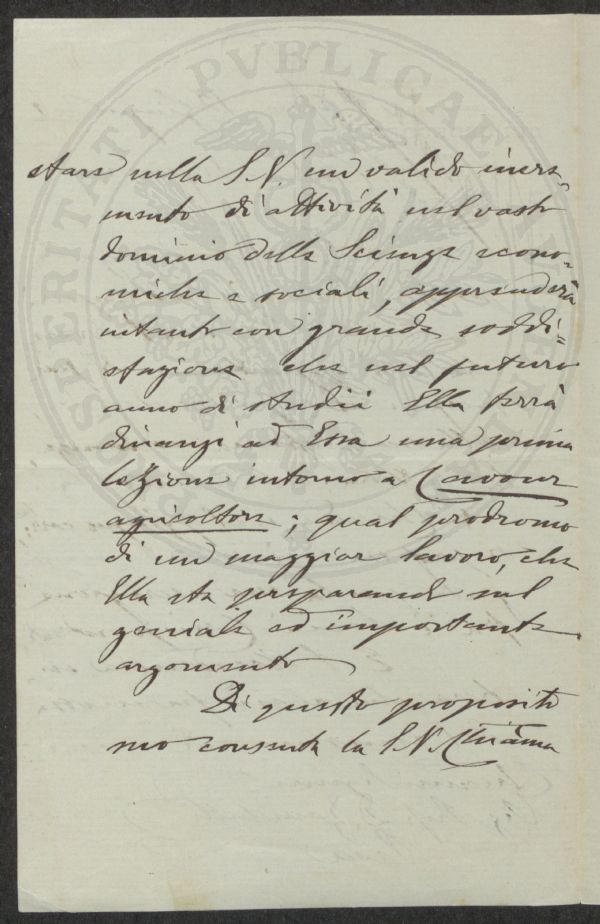 stare nella S. V. un valido incre-
mento di attività nel vasto
dominio delle Scienze econo-
miche e sociali, apprenderà
intanto con grande soddi-
sfazione che nel futuro
anno di studii Ella terrà
dinanzi ad Essa una prima
lezione intorno a Cavour
agricoltore; qual prodromo
di un maggior lavoro, che
Ella sta preparando sul
geniale ed importante
argomento
Di questo proposito
mo consenta la S. V. Chiāma
PVBLICAE